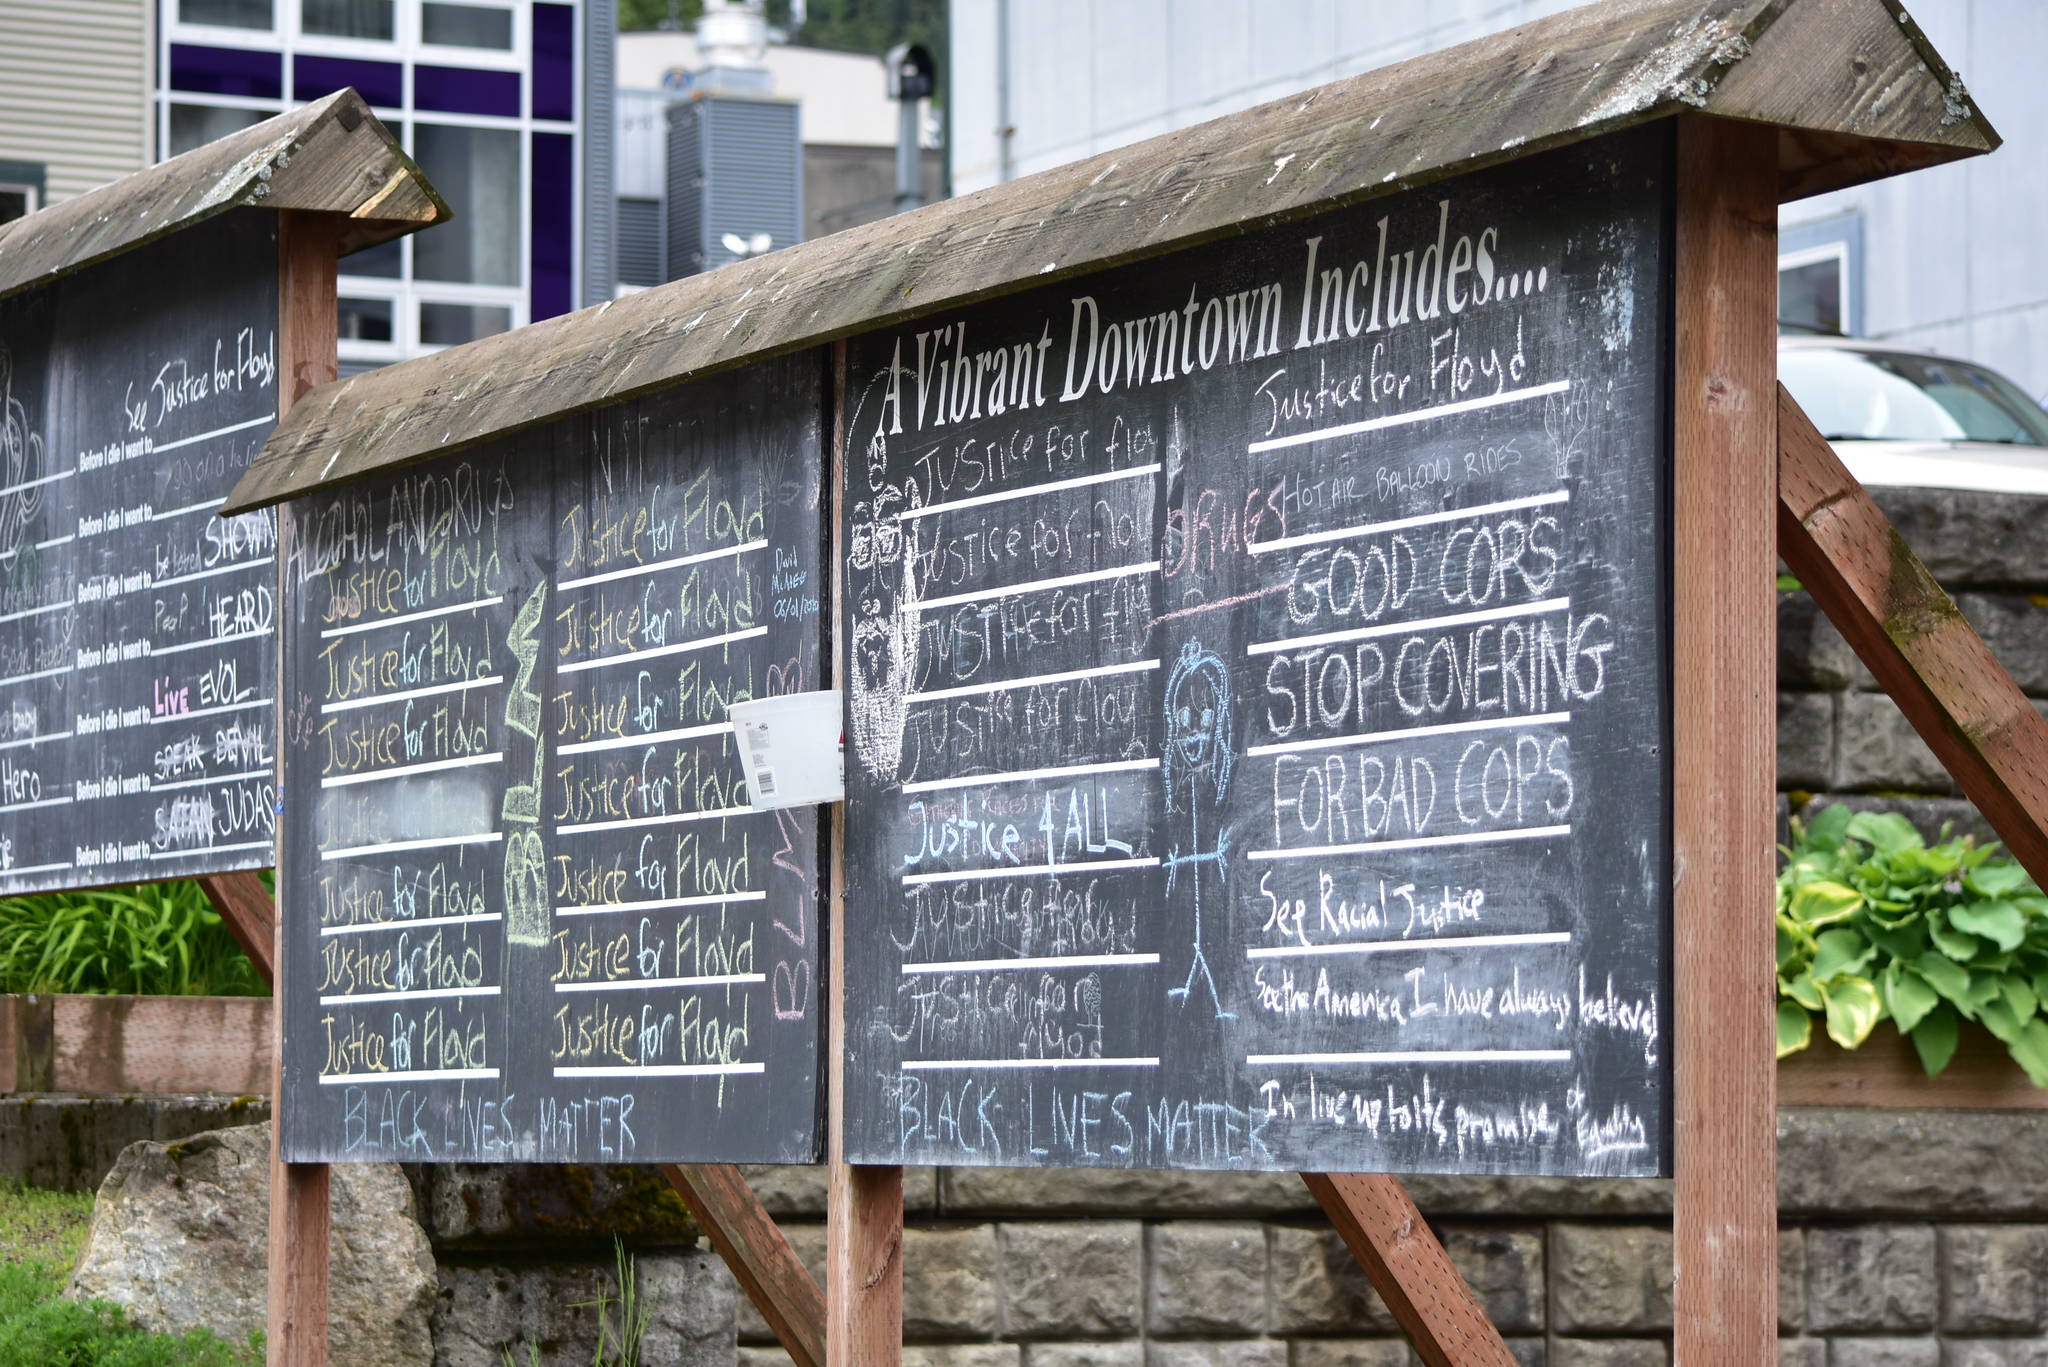 See Justice for Floyd
Before I die I want to
Before I die I want to
be better SHOWN
Before I die I want to
HEARD
Before I die I want to
LIVE EVOL
Before I die I want to
SPEAK DEVIL
Hero
Before I die I want to
SATAN JUDAS
Before I die I want to
baby
ALCOHOL AND DRUGS
Justice for Floyd
Justice for Floyd
Justice for Floyd
Justice for Floyd
Justice for Floyd
Justice for Floyd
BLM
Justice for Floyd
Justice for Floyd
Justice for Floyd
Justice for Floyd
Justice for Floyd
Justice for Floyd
Justice for Floyd
David
McAtee
06/01/2020
BLM
BLACK LIVES MATTER
A Vibrant Downtown Includes....
JUSTICE for flo
JUSTICE for
JUSTICE for
JUSTICE for floy
Justice 4 ALL
Justice
Justice for
BLACK LIVES MATTER
DRUGS
Justice for Floyd
HOT AIR BALLOON RIDES
GOOD COPS
STOP COVERING
FOR BAD COPS
See Racial Justice
See the America I have always believed
In live up to it's promise of
Equality